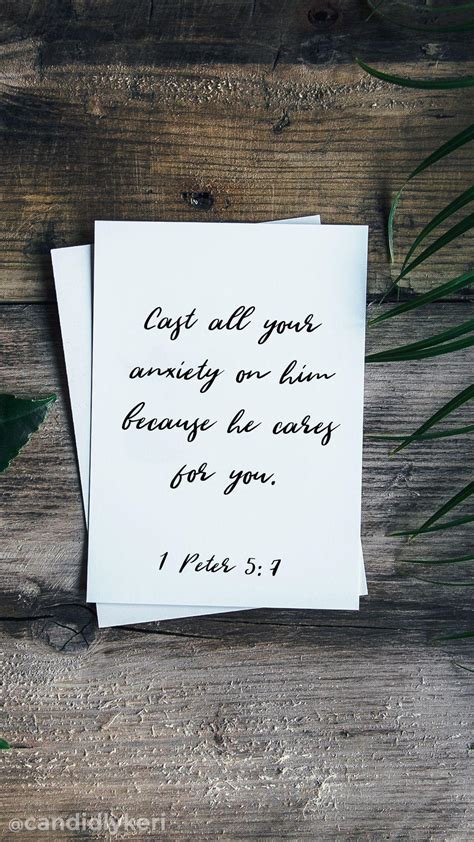 Cast all your
anxiety on him
because he cares
for you.
1 Peter 5:7
@candidlykeri